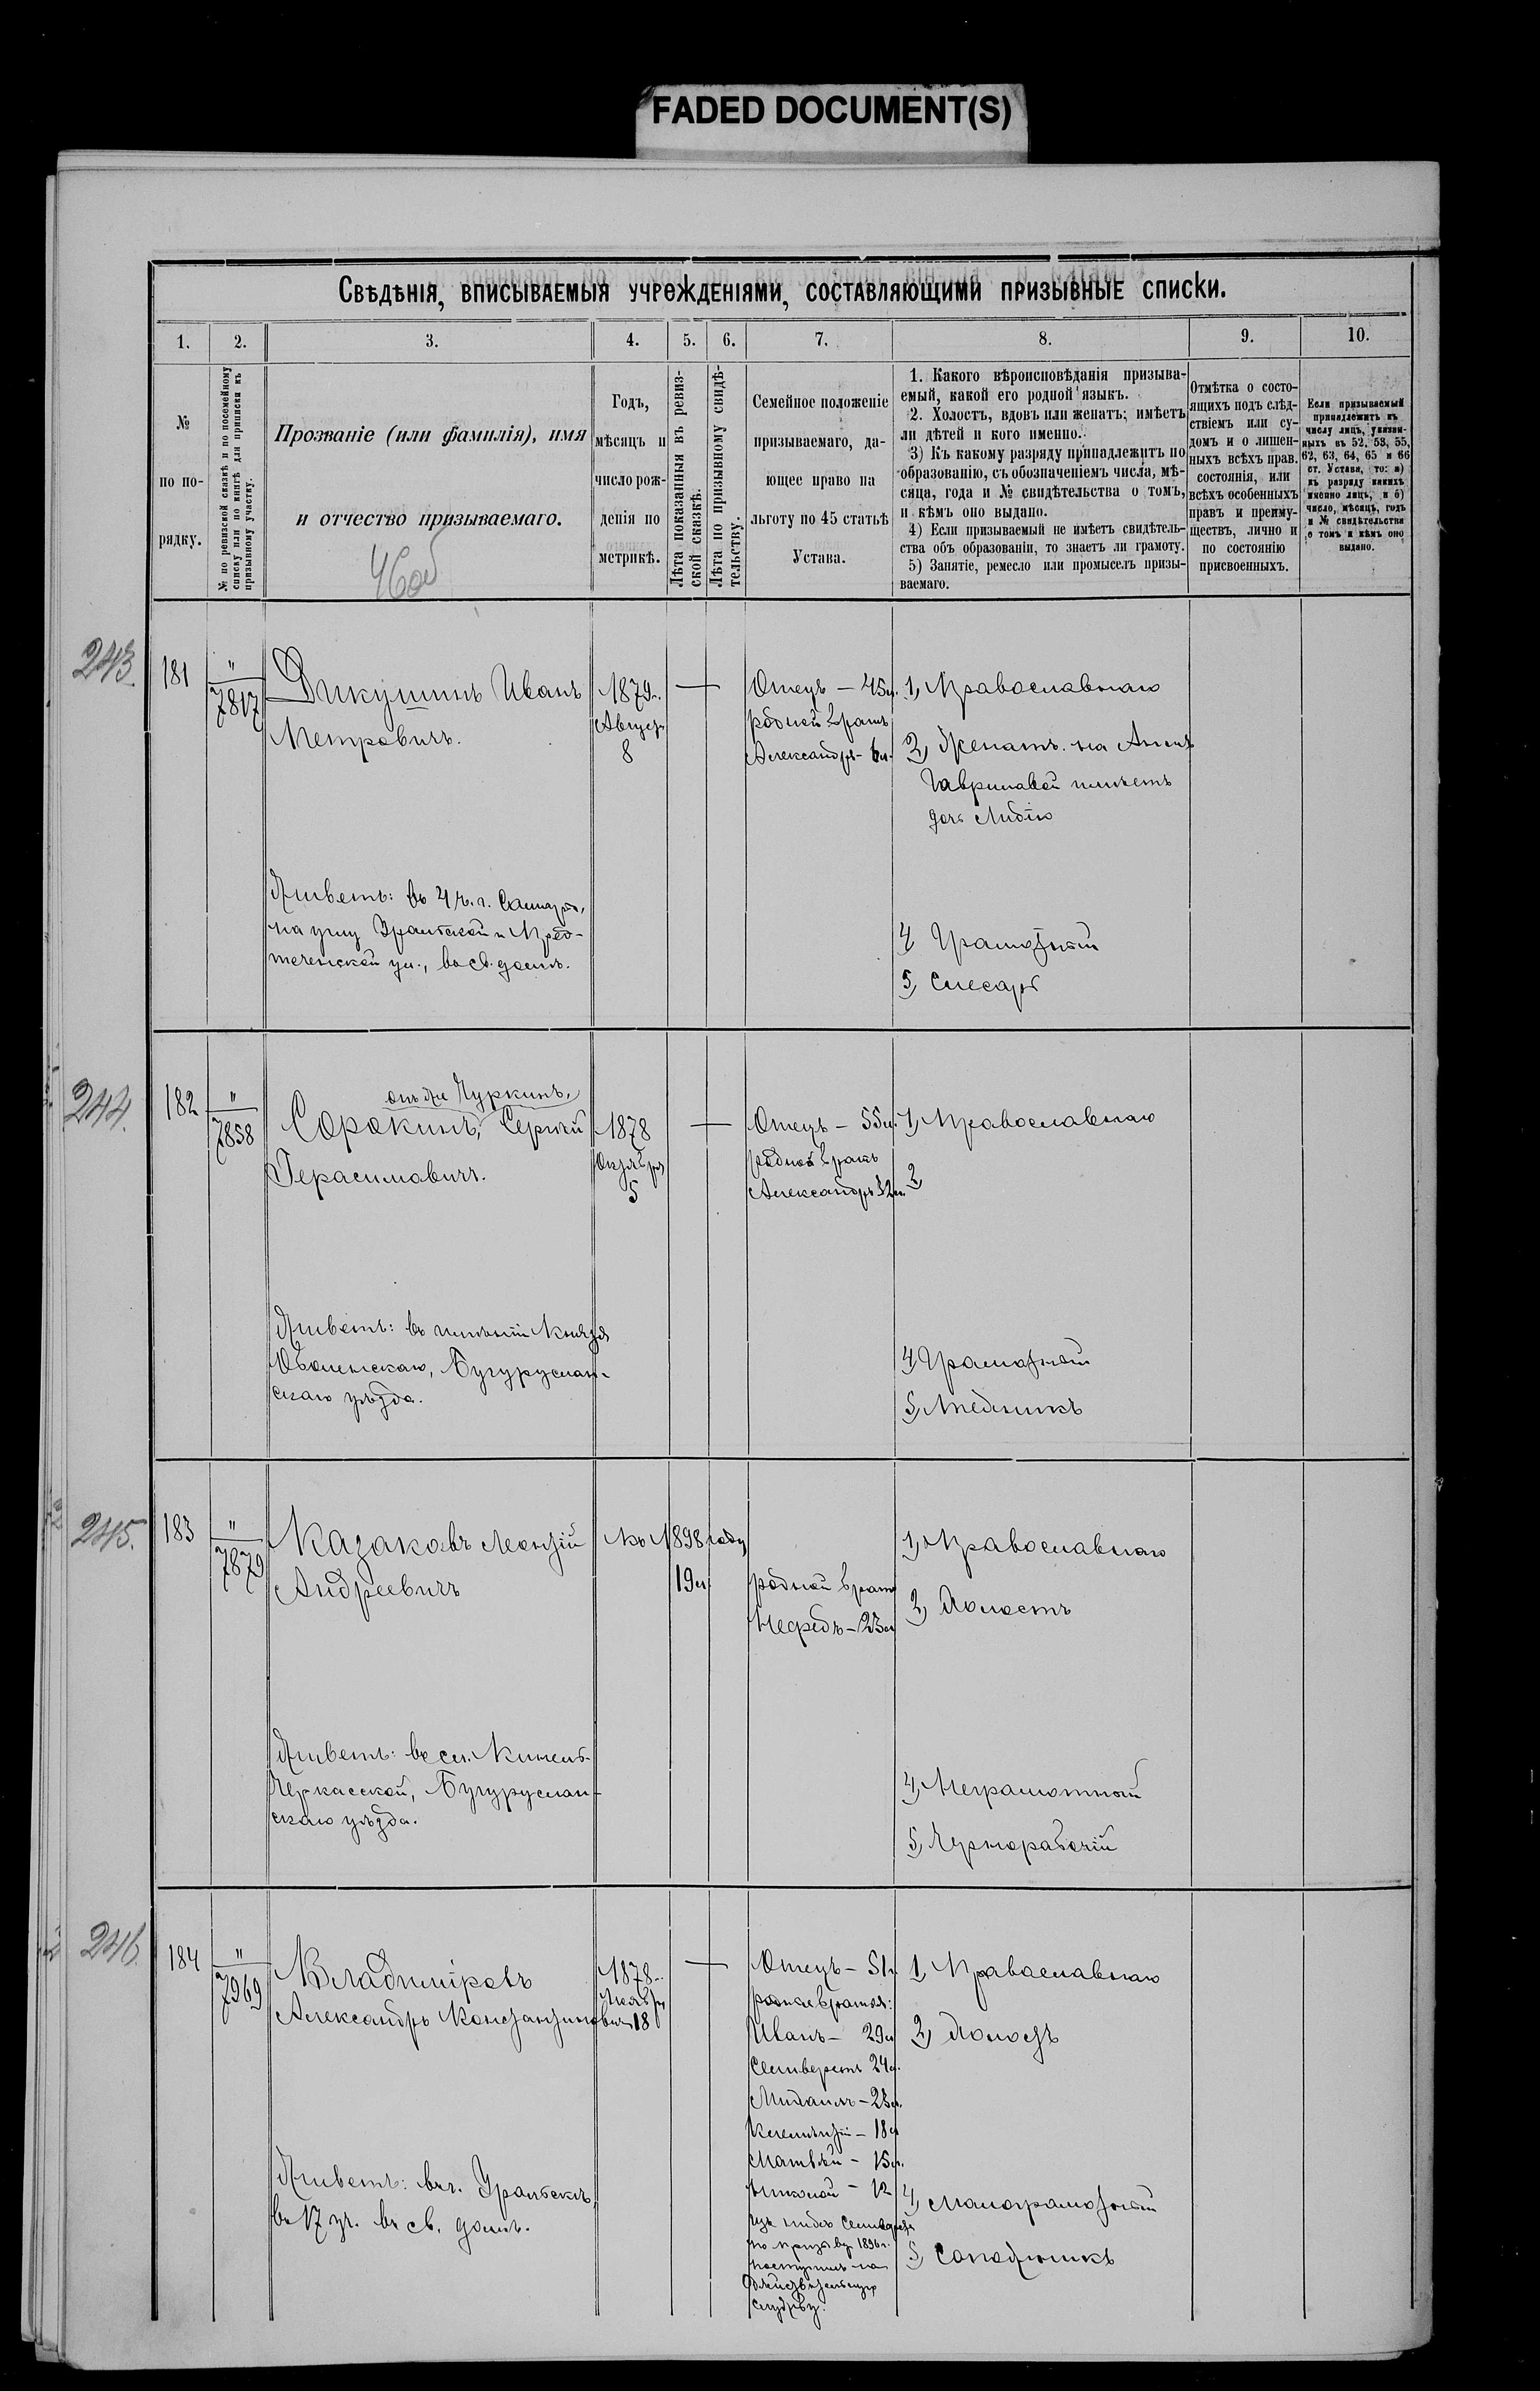 FADED DOCUMENT(S)
Свѣдѣнія, вписываемыя учрежденіями, составляющими призывные списки.
1. 2. 3. 4. 5. 6. 7. 8. 9. 10.
№
по по-
рядку.
№ по ревизской сказкѣ и по посемейному
списку или по книгѣ для приписки къ
призывному участку.
Прозваніе (или фамилія), имя
и отчество призываемаго.
Годъ,
мѣсяцъ и
число рож-
денія по
метрикѣ.
Лѣта показанныя въ ревиз-
ской сказкѣ.
Лѣта по призывному свидѣ-
тельству.
Семейное положеніе
призываемаго, да-
ющее право на
льготу по 45 статьѣ
Устава.
1. Какого вѣроисповѣданія призыва-
емый, какой его родной языкъ.
2. Холостъ, вдовъ или женатъ; имѣетъ
ли дѣтей и кого именно.
3) Къ какому разряду принадлежитъ по
образованію, съ обозначеніемъ числа, мѣ-
сяца, года и № свидѣтельства о томъ,
и кѣмъ оно выдано.
4) Если призываемый не имѣетъ свидѣтель-
ства объ образованіи, то знаетъ ли грамоту.
5) Занятіе, ремесло или промыселъ призы-
ваемаго.
Отмѣтка о состо-
ящихъ подъ слѣд-
ствіемъ или су-
домъ и о лишен-
ныхъ всѣхъ прав.
состоянія, или
всѣхъ особенныхъ
правъ и преиму-
ществъ, лично и
по состоянію
присвоенныхъ.
Если призываемый
принадлежитъ къ
числу лицъ, указан-
ныхъ въ 52, 53, 55,
62, 63, 64, 65 и 66
ст. Устава, то: а)
къ разряду какихъ
именно лицъ, и б)
число, мѣсяцъ, годъ
и № свидѣтельства
о томъ и кѣмъ оно
выдано.
243.
181
"
7817
Дикушинъ Иванъ
Петровичъ.
1879г.
Август
8
Отецъ - 45л.
родной братъ
Александръ - 6л.
1, Православнаго
2, Женатъ на Аннѣ
Гавриловой имѣетъ
дочь Лидію
Живетъ: въ 4 ч. г. Самары,
на углу Уральской и Пред-
теченской ул., въ св. домѣ.
4, Грамотный
5, Слесарь
244.
182
"
7858
онъ же Чуркинъ,
Сорокинъ, Сергѣй
Герасимовичъ.
1878
Октября
5
Отецъ - 55л.
родной братъ
Александръ 32л.
1, Православнаго
2,
Живетъ: въ имѣніи Князя
Оболенскаго, Бугуруслан-
скаго уѣзда.
4, Грамотный
5, Медникъ
245.
183
"
7879
Казаковъ Леонтій
Андреевичъ
Къ 1898 году
19л.
родной братъ
Нефедъ - 23л.
1, Православнаго
2, Холостъ
Живетъ: въ сл. Кинель-
Черкасской, Бугуруслан-
скаго уѣзда.
4, Неграмотный
5, Чернорабочій
246.
184
"
7969
Владиміровъ
Александръ Константиновичъ
1878г.
Ноября
18
Отецъ - 51л.
родные братья:
Иванъ - 29л.
Селиверстъ 24л.
Михаилъ - 23л.
Клементій - 18л.
Матвѣй - 15л.
Николай - 12
изъ нихъ Селиверстъ
по призыву 1896г.
поступилъ на
дѣйствительную
службу.
1, Православнаго
2, Холостъ
Живетъ: въ г. Уральскѣ,
въ 17 уч. въ св. домѣ.
4, Малограмотный
5, Сапожникъ